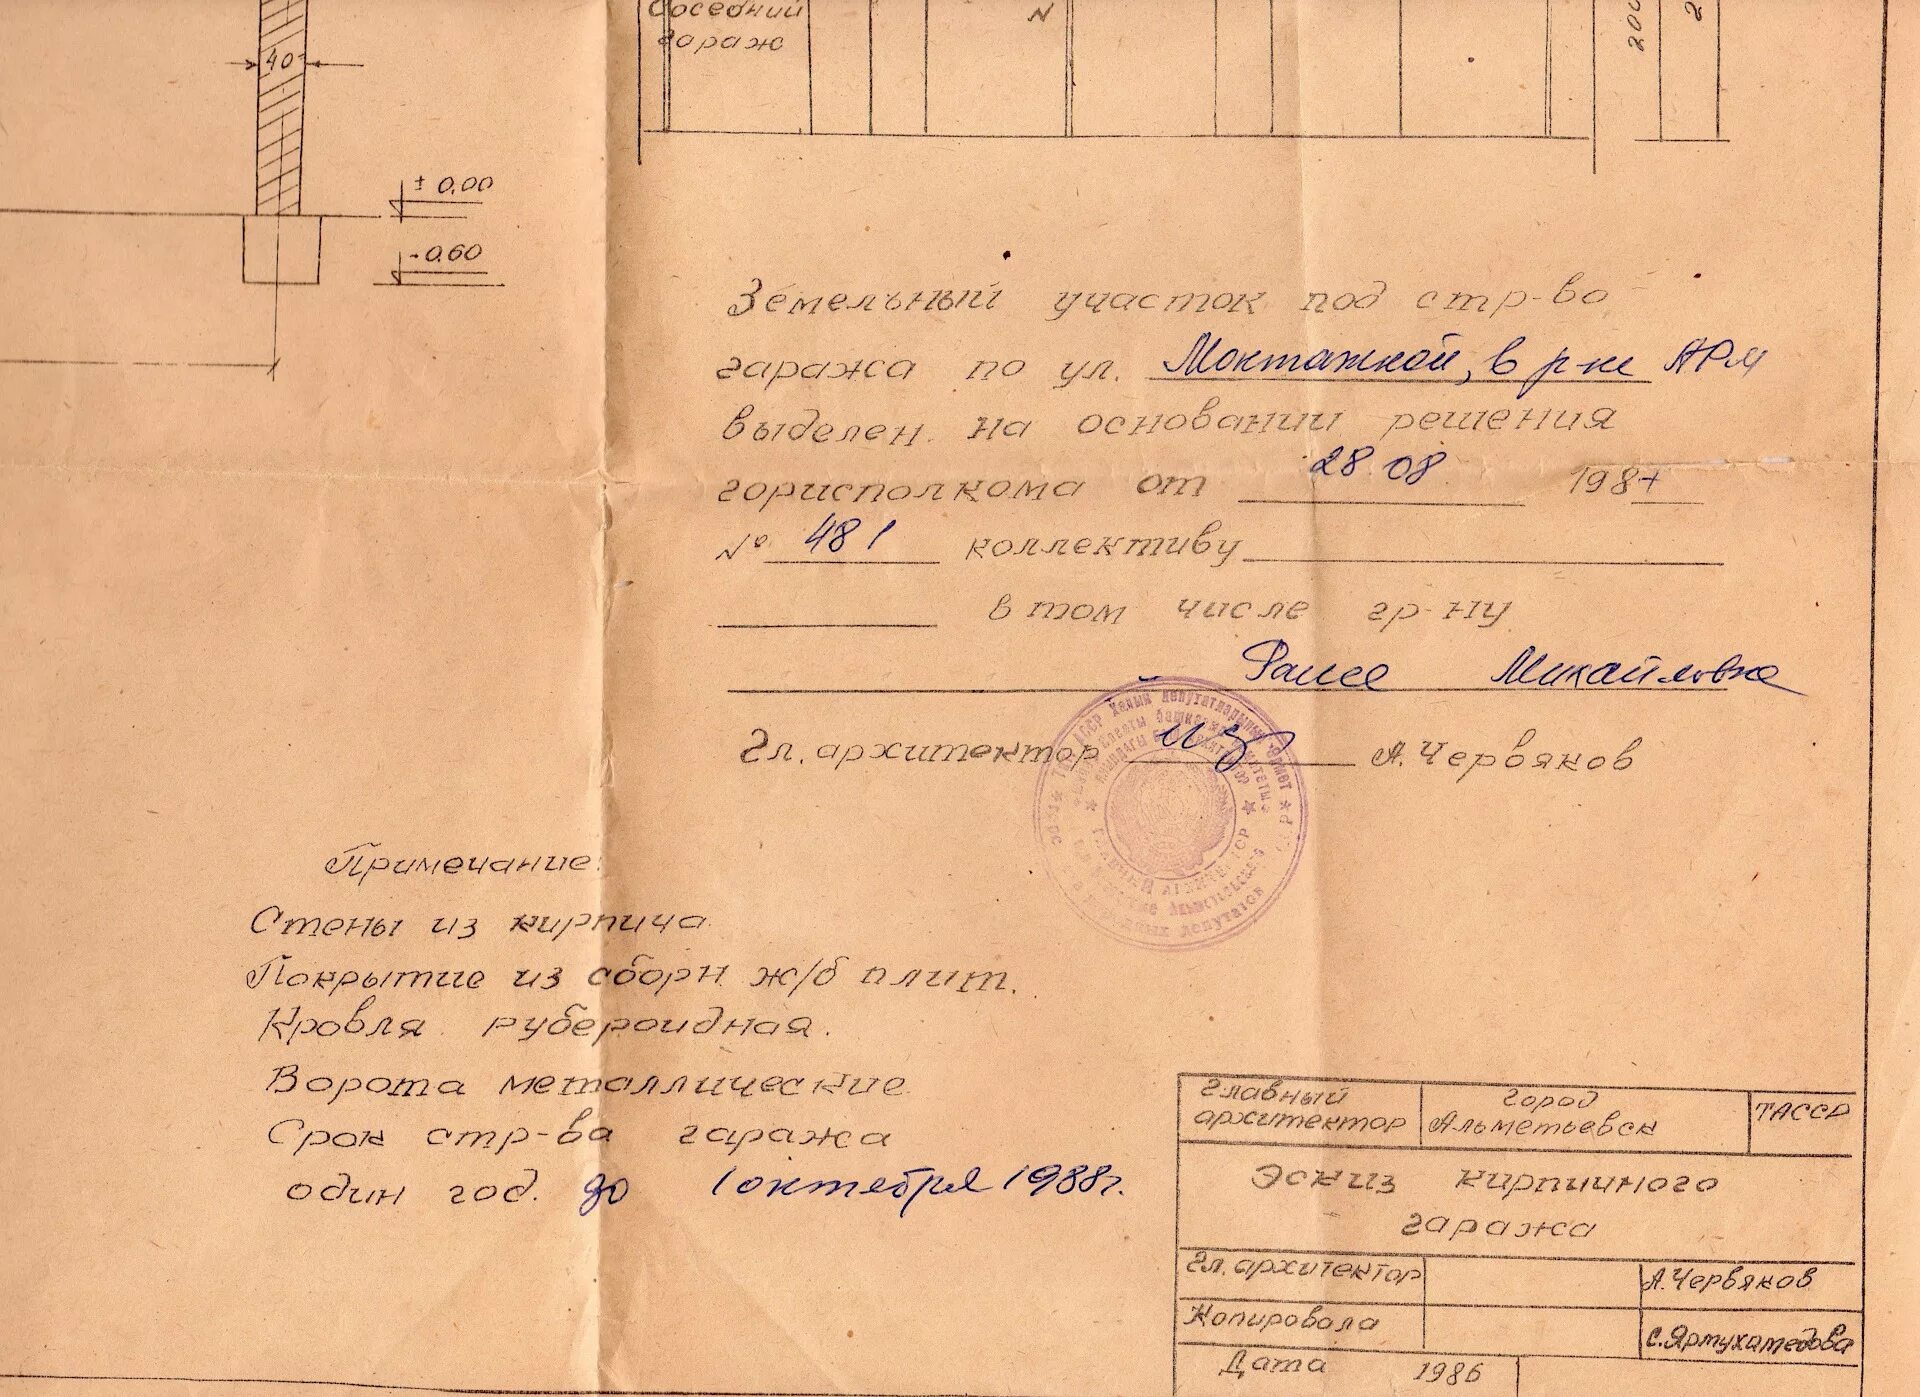 Соседний
гараж
N
200
2
40
± 0,00
-0.60
Земельный участок под стр-во
гаража по ул. Монтажной, в р-не АРМ
выделен на основании решения
горисполкома от 28.08. 1987
№ 481 коллективу
в том числе гр-ну
Раисе Михайловне
Гл. архитектор А. Червяков
Примечание:
Стены из кирпича
Покрытие из сборн. ж/б плит.
Кровля рубероидная.
Ворота металлические
Срок стр-ва гаража
один год. до 1 октября 1988г.
Главный архитектор
город Альметьевск
ТАССР
Эскиз кирпичного
гаража
Гл. архитектор А. Червяков
Копировала С. Ярмухаметова
Дата 1986